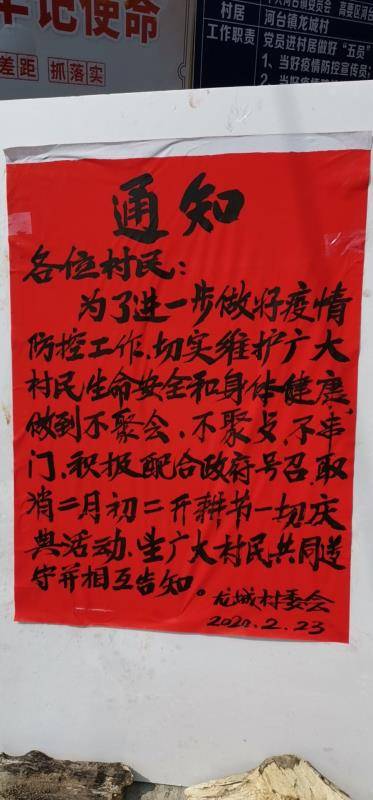 牢记使命
差距 抓落实
村居
河台镇龙城村
工作职责
党员进村居做好“五员”
1、当好疫情防控宣传员
2、当好疫情
通知
各位村民:
为了进一步做好疫情
防控工作、切实维护广大
村民生命安全和身体健康,
做到不聚会、不聚攴、不串
门、积极配合政府号召、取
消二月初二开耕节一切庆
典活动、望广大村民共同遵
守并相互告知。
龙城村委会
2020.2.23